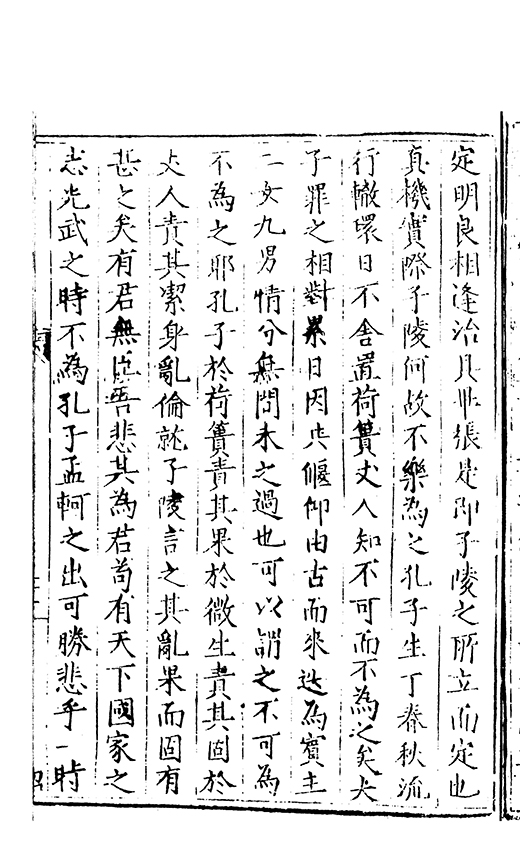 定明良相逢治具畢張是即子陵之所立而定也
真機實際子陵何故不樂為之孔子生丁春秋流
行轍環日不舍置荷蕢丈人知不可而不為之矣夫
子罪之相對累日因共偃仰由古而來迭為賓主
二女九男情分無間未之過也可以謂之不可為
不為之耶孔子於荷蕢責其果於微生責其固於
丈人責其潔身亂倫就子陵言之其亂果而固有
甚之矣有君無臣吾悲其為君苟有天下國家之
志光武之時不為孔子孟軻之出可勝悲乎一時